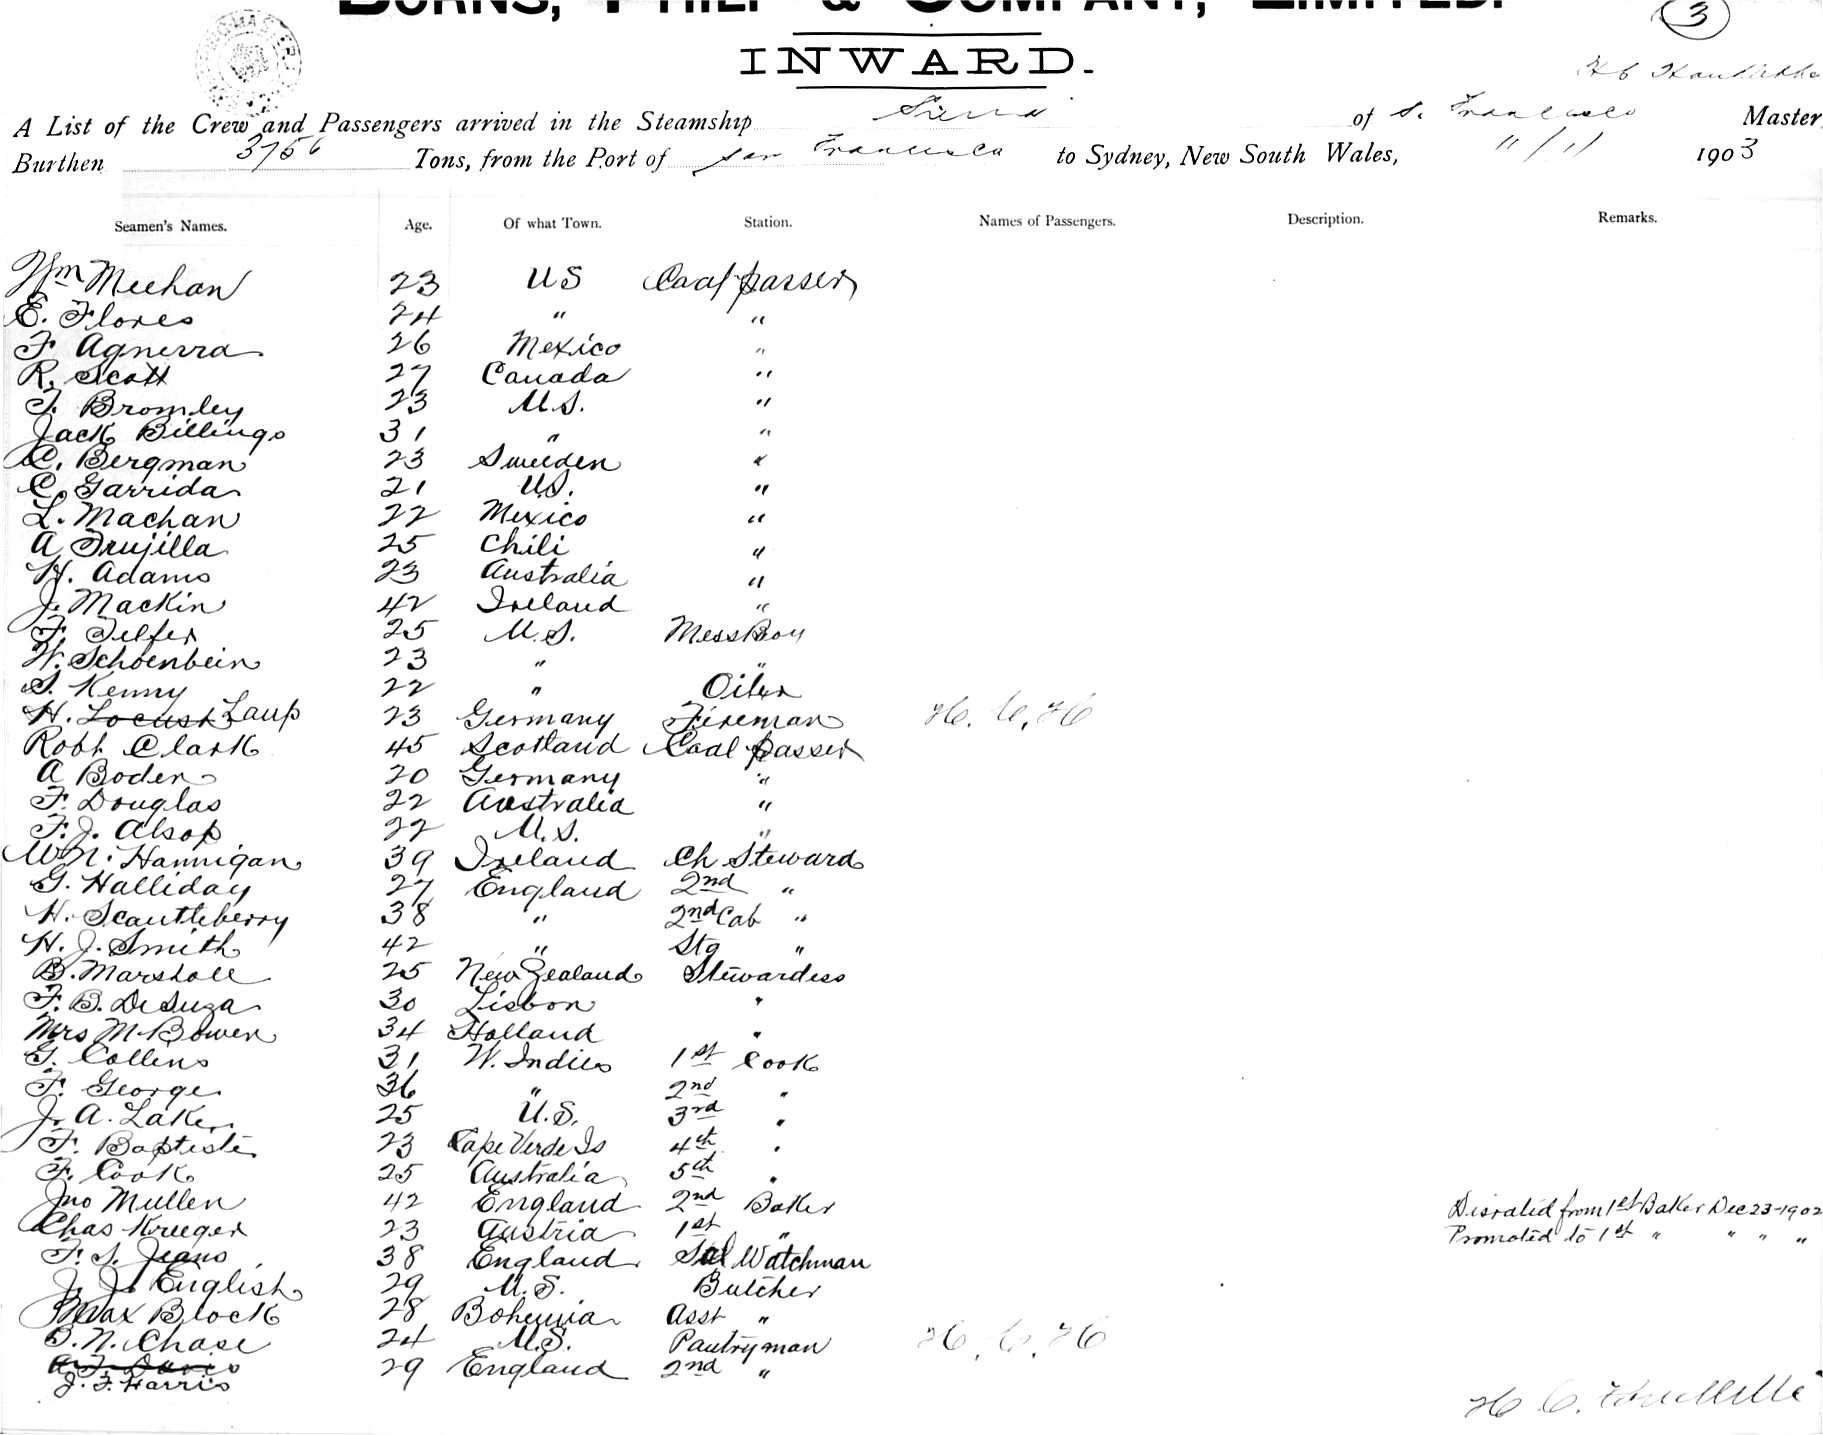 BURNS, PHILP & COMPANY, LIMITED.
3
INWARD.
A List of the Crew and Passengers arrived in the Steamship Sierra of S. Francisco Master,
Burthen 3756 Tons, from the Port of San Francisco to Sydney, New South Wales, 11/1 1903
Seamen's Names. Age. Of what Town. Station. Names of Passengers. Description. Remarks.
Wm Meehan 23 US Coal passer
E. Flores 24 " "
F Agnerra 26 Mexico "
R. Scott 27 Canada "
T. Bromley 23 U.S. "
Jack Billings 31 " "
C. Bergman 23 Sweeden "
C. Garrida 21 U.S. "
L. Machan 22 Mexico "
A Trujilla 25 Chili "
H. Adams 23 Australia "
J. Mackin 42 Ireland "
F. Telfer 25 U.S. MessBoy
W. Schoenbein 23 " "
S. Kenny 22 " Oiler
H. Locust Laup 23 Germany Fireman H. C. H
Robt Clark 45 Scotland Coal passer
A Boden 20 Germany "
F. Douglas 22 Australia "
F. J. Alsop 22 U.S. "
W. N. Hannigan 39 Ireland Ch Steward
G. Halliday 27 England 2nd "
H. Scantleberry 38 " 2nd Cab "
H. J. Smith 42 " Stg "
B. Marshall 25 New Zealand Stewardess
F. B. DeSuza 30 Lisbon "
Mrs M. Bowen 34 Holland "
G. Collens 31 W. Indies 1st Cook
F. George 36 " 2nd "
J. A. Laker 25 U.S. 3rd "
F. Baptiste 23 Cape Verde Is 4th "
F. Cook 25 Australia 5th "
Jno Mullen 42 England 2nd Baker Disrated from 1st Baker Dec 23-1902
Chas Krueger 23 Austria 1st " Promoted to 1st " " " "
F. S. Jeans 38 England Sal Watchman
J. J. English 29 U.S. Butcher
Max Block 28 Bohemia Asst "
B. N. Chase 24 U.S. Pantryman H. C. H
A. F. Davis 29 England 2nd "
J. F. Harris
H C.